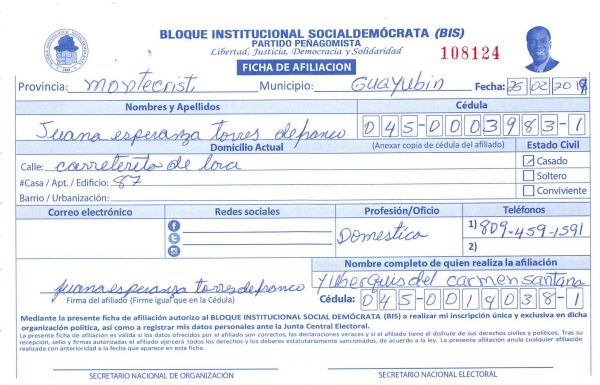 BLOQUE INSTITUCIONAL SOCIALDEMÓCRATA (BIS)
PARTIDO PEÑAGOMISTA
Libertad, Justicia, Democracia y Solidaridad
108124
FICHA DE AFILIACION
Provincia: Montecristi Municipio: Guayubin Fecha: 25 02 2019
Nombres y Apellidos Cédula
Juana esperanza torres defranco 045-0003983-1
Domicilio Actual (Anexar copia de cédula del afiliado) Estado Civil
Calle: carreterita de lora Casado
#Casa / Apt. / Edificio: 87 Soltero
Barrio / Urbanización: Conviviente
Correo electrónico Redes sociales Profesión/Oficio Teléfonos
Domestica 1) 809-459-1591
2)
Nombre completo de quien realiza la afiliación
juana esperanza torres defranco Yuberquis del carmen santana
Firma del afiliado (Firme igual que en la Cédula) Cédula: 045-0019038-1
Mediante la presente ficha de afiliación autorizo al BLOQUE INSTITUCIONAL SOCIAL DEMÓCRATA (BIS) a realizar mi inscripción única y exclusiva en dicha
organización política, así como a registrar mis datos personales ante la Junta Central Electoral.
La presente ficha de afiliación es válida si los datos ofrecidos por el afiliado son correctos, las declaraciones veraces y si el afiliado tiene el disfrute de sus derechos civiles y políticos. Tras su
recepción, sello y firmas autorizadas el afiliado ejercerá todos los derechos y los deberes estatutariamente sancionados, de acuerdo a la ley. La presente afiliación anula cualquier afiliación
realizada con anterioridad a la fecha que aparece en esta ficha.
SECRETARIO NACIONAL DE ORGANIZACIÓN SECRETARIO NACIONAL ELECTORAL